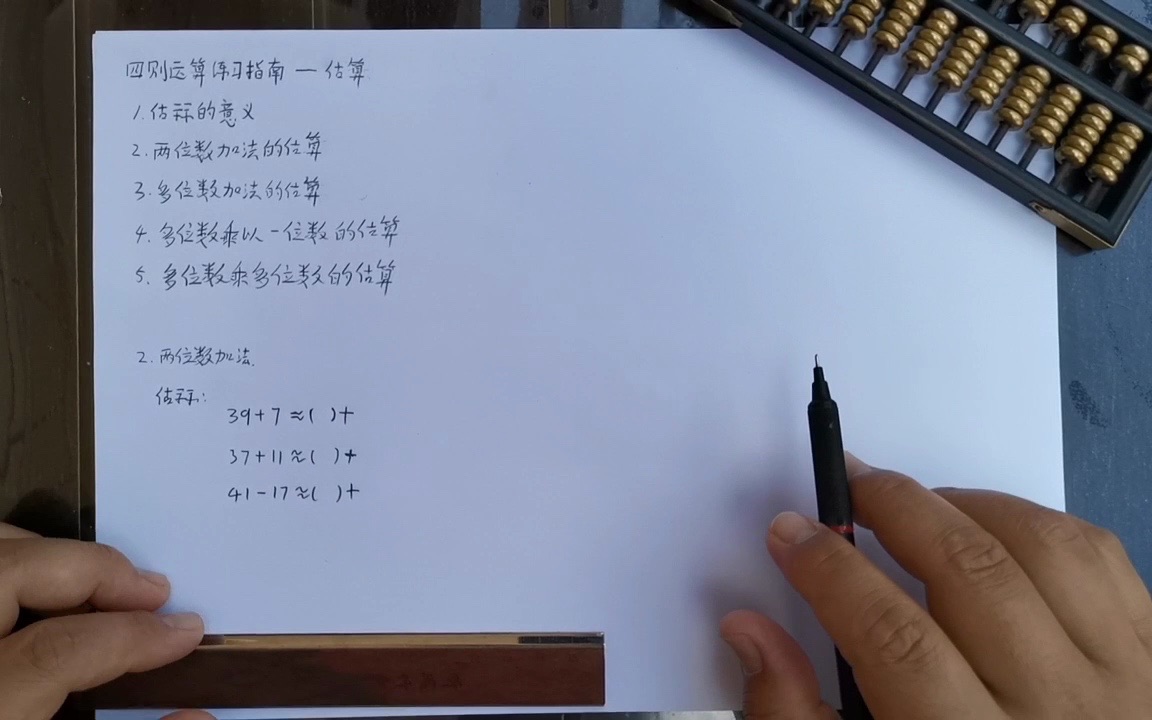 四则运算练习指南 — 估算
1. 估算的意义
2. 两位数加法的估算
3. 多位数加法的估算
4. 多位数乘以一位数的估算
5. 多位数乘多位数的估算
2. 两位数加法.
估算:
39+7≈( )+
37+11≈( )+
41-17≈( )+